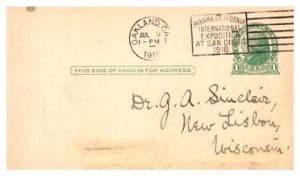 OAKLAND, CA.
JUL
-PM
1916
PANAMA CALIFORNIA
INTERNATIONAL
EXPOSITION
AT SAN DIEGO
1916
THIS SIDE OF CARD IS FOR ADDRESS
Dr. G. A. Sinclair,
New Lisbon,
Wisconsin.